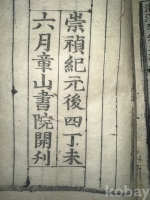 崇禎紀元後四丁未
六月章山書院開刊
kobay